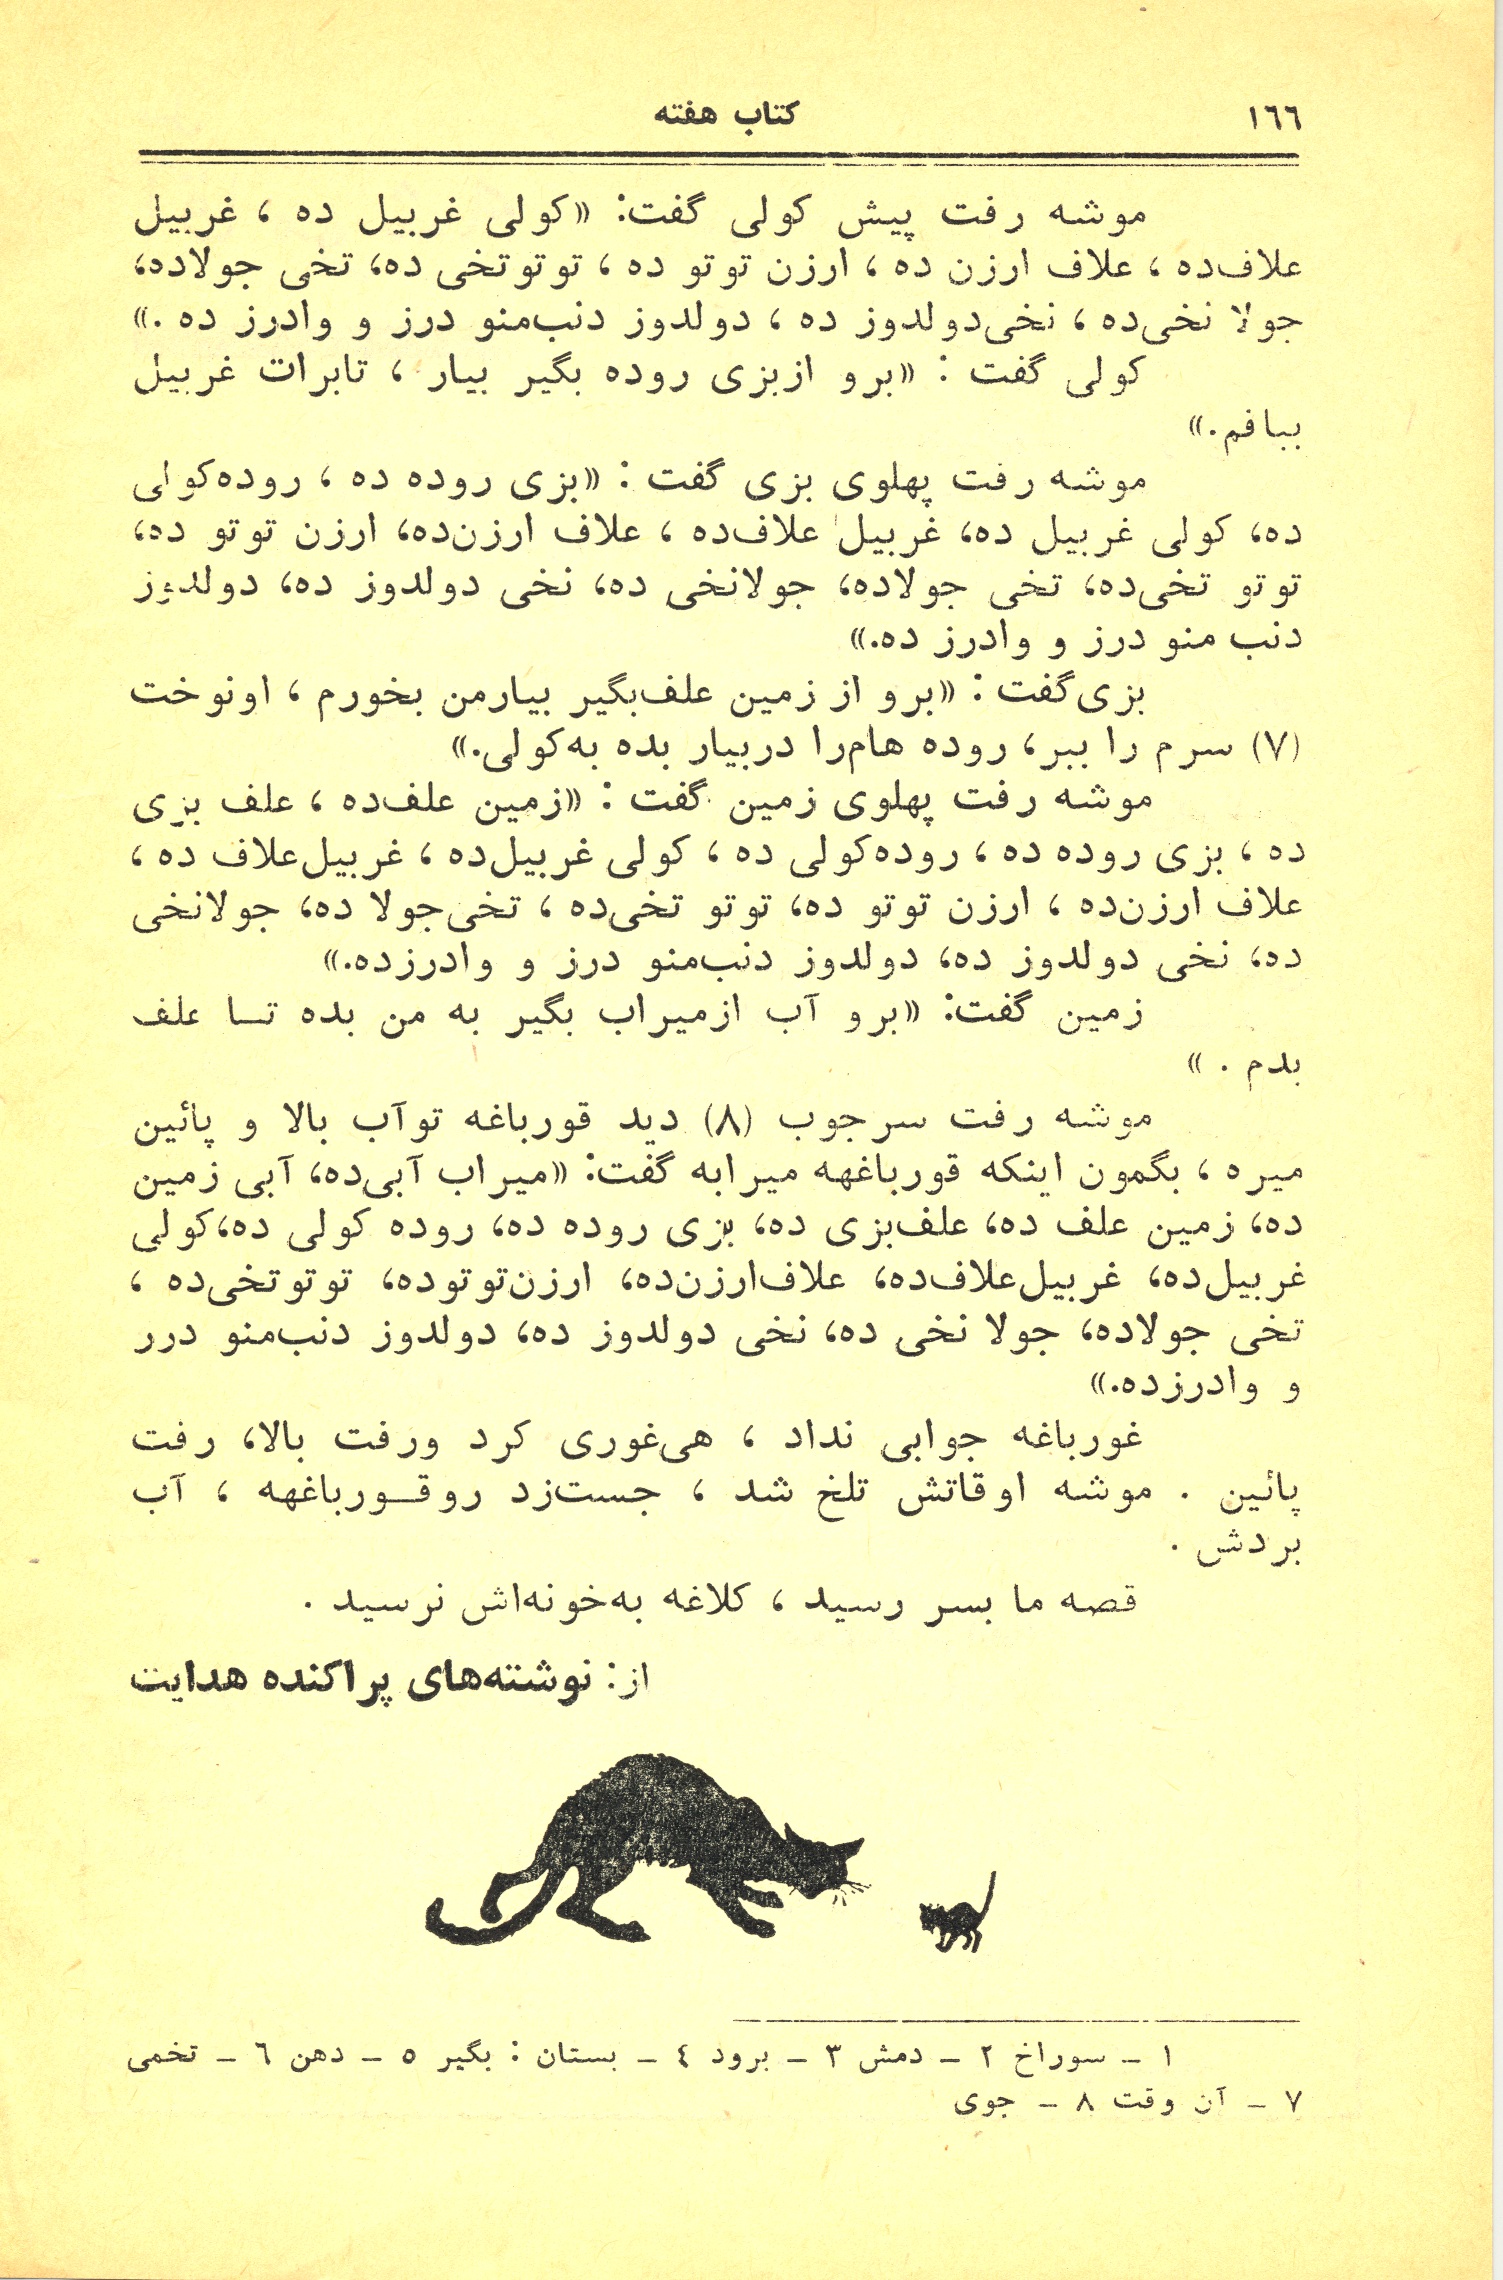 ۱۶۶
کتاب هفته
موشه رفت پیش کولی گفت: «کولی غربیل ده ، غربیل
علاف‌ده ، علاف ارزن ده ، ارزن توتو ده ، توتوتخی ده، تخی جولاده،
جولا نخی‌ده ، نخی‌دولدوز ده ، دولدوز دنب‌منو درز و وادرز ده .»
کولی گفت : «برو ازبزی روده بگیر بیار ، تابرات غربیل
ببافم.»
موشه رفت پهلوی بزی گفت : «بزی روده ده ، روده‌کولی
ده، کولی غربیل ده، غربیل علاف‌ده ، علاف ارزن‌ده، ارزن توتو ده،
توتو تخی‌ده، تخی جولاده، جولانخی ده، نخی دولدوز ده، دولدوز
دنب منو درز و وادرز ده.»
بزی‌گفت : «برو از زمین علف‌بگیر بیارمن بخورم ، اونوخت
(۷) سرم را ببر، روده هام‌را دربیار بده به‌کولی.»
موشه رفت پهلوی زمین گفت : «زمین علف‌ده ، علف بزی
ده ، بزی روده ده ، روده‌کولی ده ، کولی غربیل‌ده ، غربیل‌علاف ده ،
علاف ارزن‌ده ، ارزن توتو ده، توتو تخی‌ده ، تخی‌جولا ده، جولانخی
ده، نخی دولدوز ده، دولدوز دنب‌منو درز و وادرزده.»
زمین گفت: «برو آب ازمیراب بگیر به من بده تـا علف
بدم . »
موشه رفت سرجوب (۸) دید قورباغه توآب بالا و پائین
میره ، بگمون اینکه قورباغهه میرابه گفت: «میراب آبی‌ده، آبی زمین
ده، زمین علف ده، علف‌بزی ده، بزی روده ده، روده کولی ده،کولی
غربیل‌ده، غربیل‌علاف‌ده، علاف‌ارزن‌ده، ارزن‌توتوده، توتوتخی‌ده ،
تخی جولاده، جولا نخی ده، نخی دولدوز ده، دولدوز دنب‌منو درر
و وادرزده.»
غورباغه جوابی نداد ، هی‌غوری کرد ورفت بالا، رفت
پائین . موشه اوقاتش تلخ شد ، جست‌زد روقـورباغهه ، آب
بردش .
قصه ما بسر رسید ، کلاغه به‌خونه‌اش نرسید .
از: نوشته‌های پراکنده هدایت
۱ ـ سوراخ ۲ ـ دمش ۳ ـ برود ٤ ـ بستان : بگیر ٥ ـ دهن ٦ ـ تخمی
۷ ـ آن وقت ۸ ـ جوی